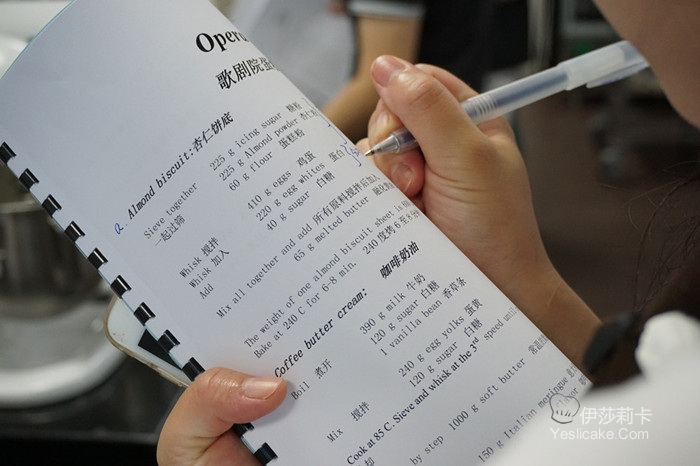 Opera
歌剧院蛋
a. Almond biscuit:杏仁饼底
Sieve together 225 g icing sugar 糖粉
一起过筛 225 g Almond powder 杏仁粉
60 g flour 蛋糕粉
Whisk 搅拌 410 g eggs 鸡蛋
Whisk 加入 220 g egg whites 蛋白
Add 40 g sugar 白糖
Mix all together and add 所有原料搅拌后加入
65 g melted butter 融化
The weight of one almond biscuit sheet is
Bake at 240 C for 6-8 min. 240 度烤 6 至 8 分
Coffee butter cream: 咖啡奶油
Boil 煮开 390 g milk 牛奶
120 g sugar 白糖
1 vanilla bean 香草条
Mix 搅拌 240 g egg yolks 蛋黄
120 g sugar 白糖
Cook at 85 C. Sieve and whisk at the 3rd speed until
却 by step 1000 g soft butter 常温
150 g Italian meringue
伊莎莉卡
Yeslicake.Com